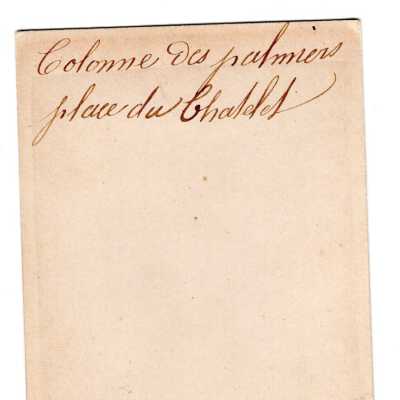 Colonne des palmiers
place du Chatelet